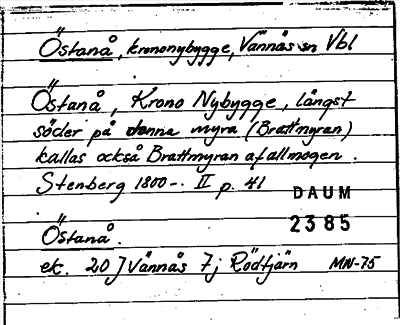 Östanå, krononybygge, Vännäs sn Vbl
Östanå, Krono Nybygge, längst
söder på denna myra (Brattmyran)
kallas också Brattmyran af allmogen.
Stenberg 1800-. II p. 41
DAUM
2385
Östanå.
ek. 20 J Vännäs 7j Rödtjärn MN-75